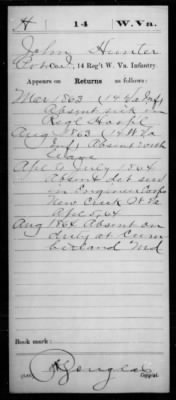 H 14 W. Va.
John Hunter
Pvt Co. I, 14 Reg't W. Va. Infantry.
Appears on Returns as follows:
Mar 1863 (14 Va Inf)
Absent sick in
Regl Hospl
Aug 1863 (14 W Va
Inf) Absent with
leave
Apl to July 1864
Absent det serv
in Engineer Corps
New Creek W Va
Apl 5, 64
Aug 1864 Absent on
duty at Cum
berland Md
Book mark:
Copyist.